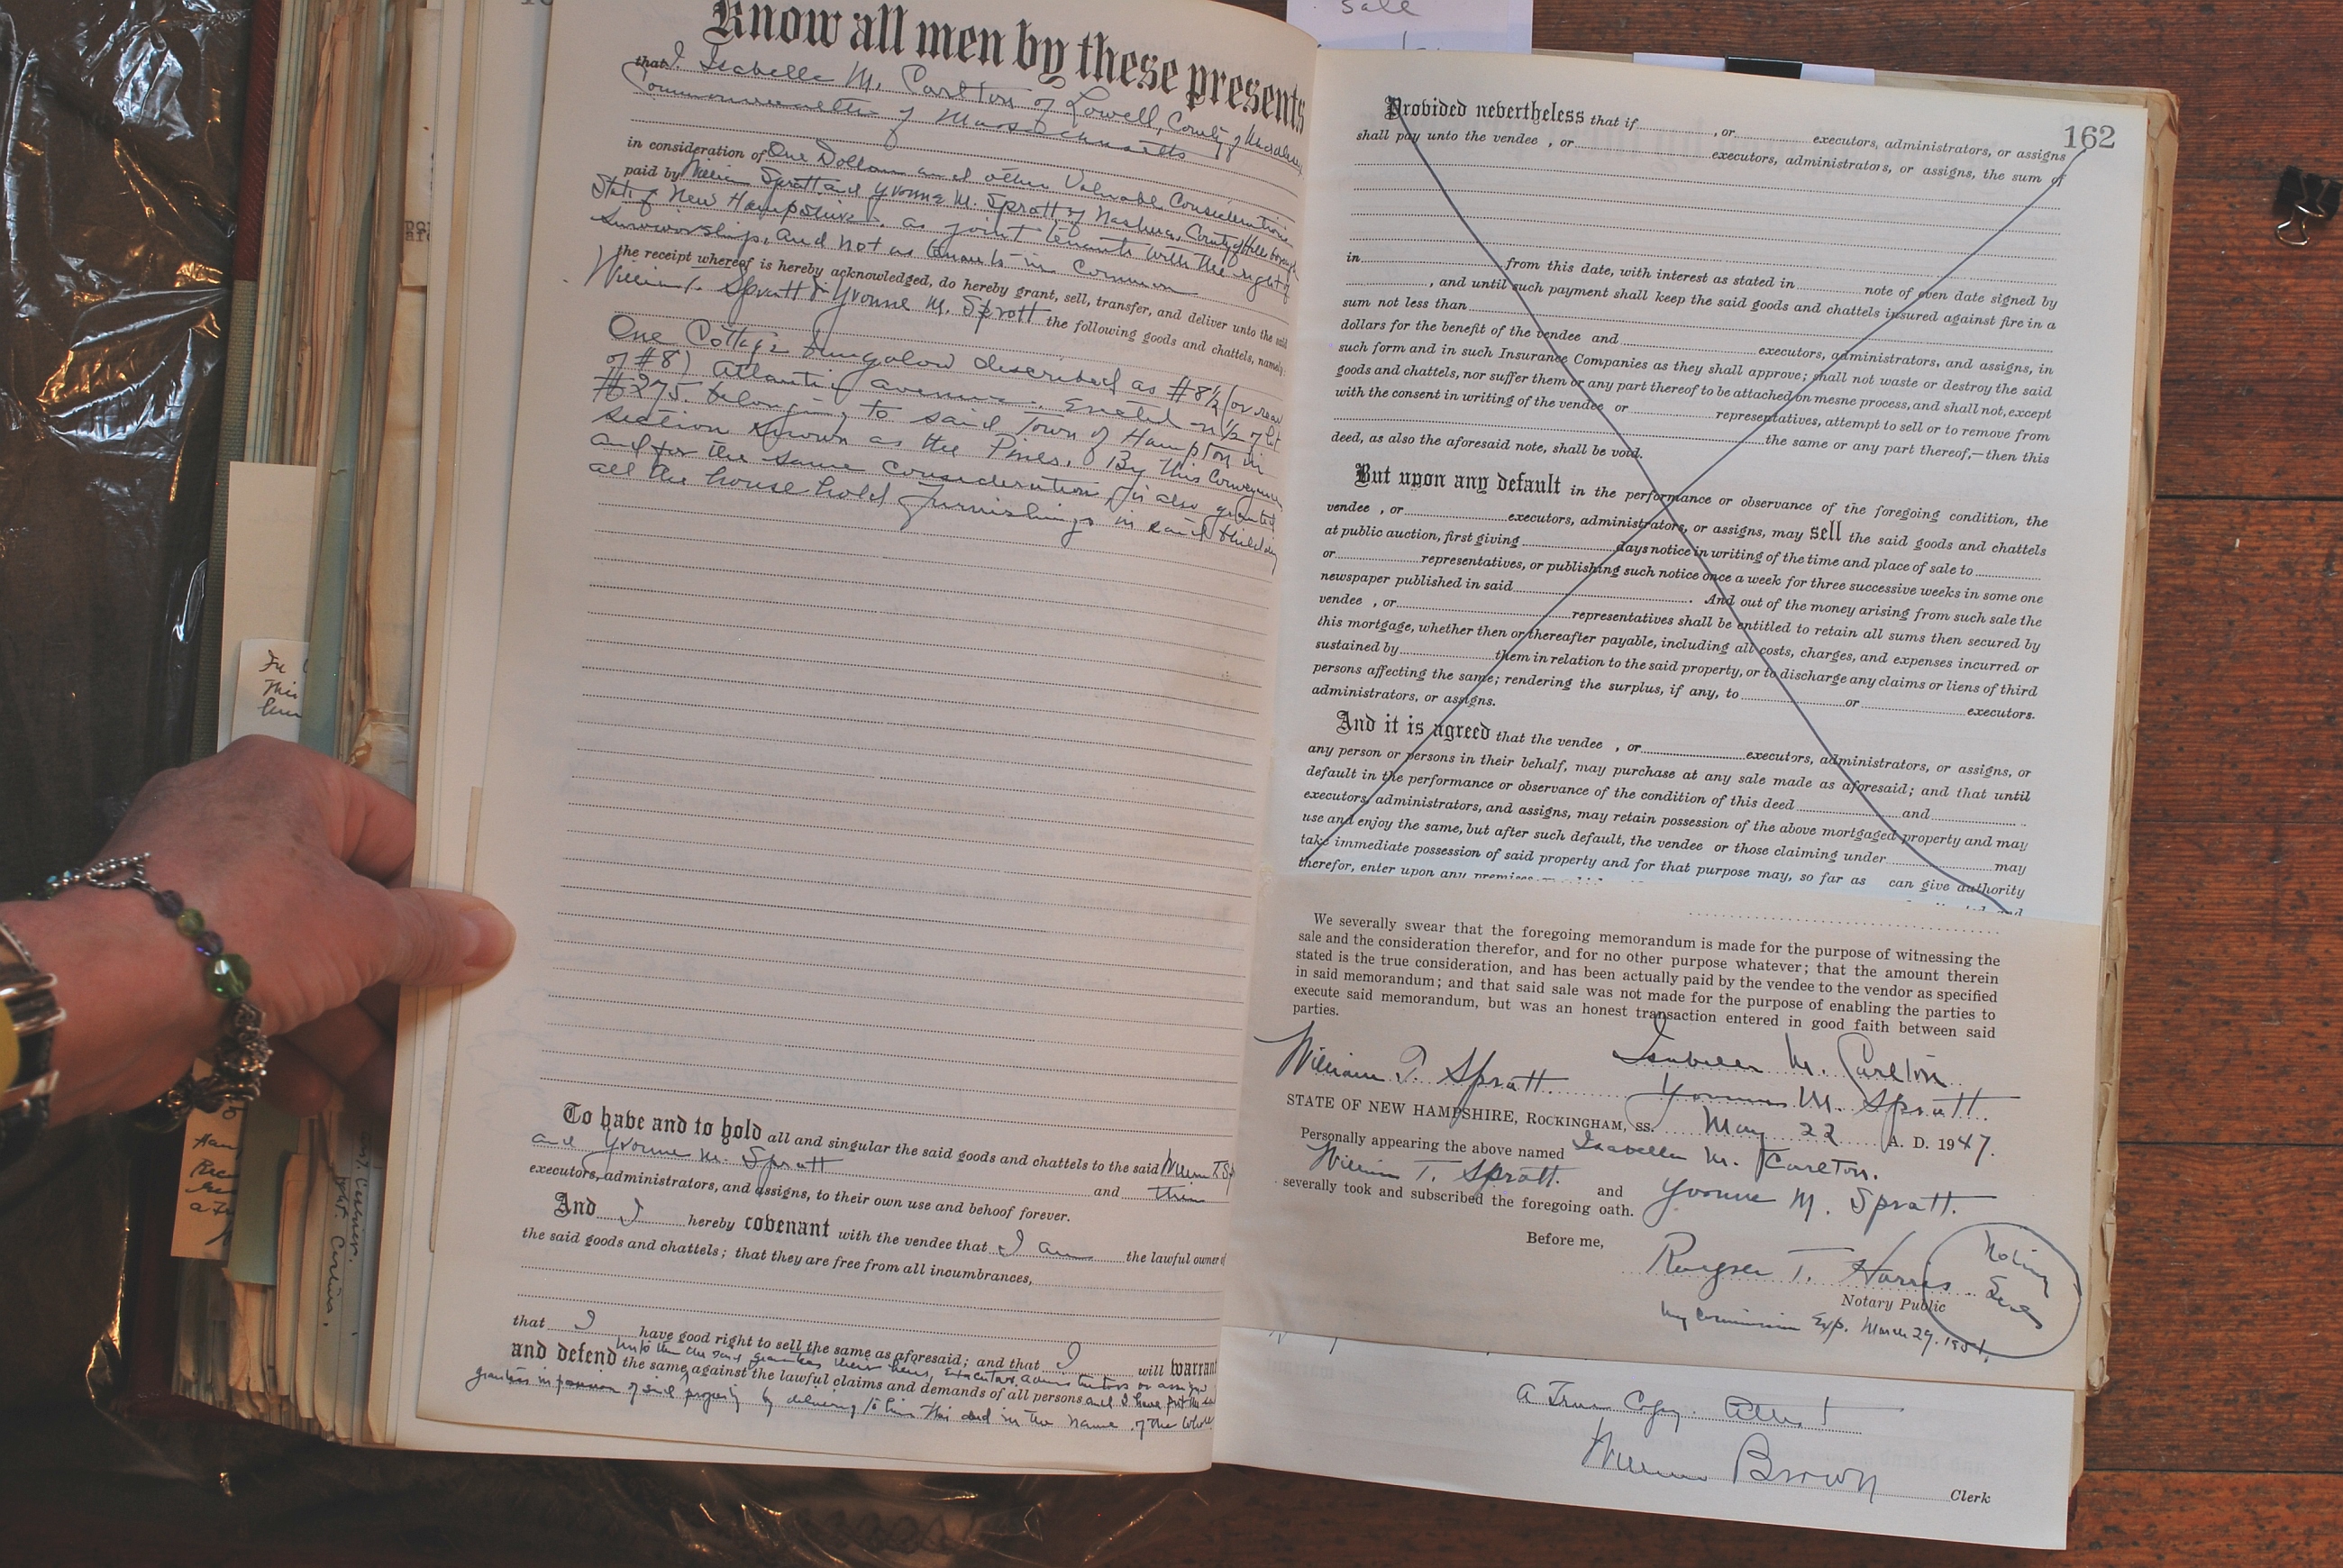 sale
Know all men by these presents
that I, Isabelle M. Carlton of Lowell, County of
Commonwealth of Massachusetts
in consideration of One Dollar and other Valuable Considerations
paid by William Spratt and Yvonne M. Spratt of Nashua, County of Hillsborough
State of New Hampshire. as joint tenants with the right of
Survivorship, and not as tenants in common
the receipt whereof is hereby acknowledged, do hereby grant, sell, transfer, and deliver unto the said
William T. Spratt & Yvonne M. Spratt the following goods and chattels, namely:
One Cottage bungalow described as #8½ (or rear
of #8) Atlantic avenue. Erected on ½ of lot
#275. belonging to said Town of Hampton in
section known as the Pines. By this Conveyance
and for the same consideration, is also granted
all the household furnishings in said building
To have and to hold all and singular the said goods and chattels to the said William T. Sp
and Yvonne M. Spratt and their
executors, administrators, and assigns, to their own use and behoof forever.
And I hereby covenant with the vendee that I am the lawful owner of
the said goods and chattels; that they are free from all incumbrances,
that I have good right to sell the same as aforesaid; and that I will warrant
unto the said grantees their heirs, executors, administrators or assigns
and defend the same against the lawful claims and demands of all persons and I have put the said
grantees in possession of said property by delivering to him this deed in the name of the whole
162
Provided nevertheless that if , or executors, administrators, or assigns
shall pay unto the vendee , or executors, administrators, or assigns, the sum of
in from this date, with interest as stated in note of even date signed by
, and until such payment shall keep the said goods and chattels insured against fire in a
sum not less than
dollars for the benefit of the vendee and executors, administrators, and assigns, in
such form and in such Insurance Companies as they shall approve; shall not waste or destroy the said
goods and chattels, nor suffer them or any part thereof to be attached on mesne process, and shall not, except
with the consent in writing of the vendee or representatives, attempt to sell or to remove from
the same or any part thereof,—then this
deed, as also the aforesaid note, shall be void.
But upon any default in the performance or observance of the foregoing condition, the
vendee , or executors, administrators, or assigns, may sell the said goods and chattels
at public auction, first giving days notice in writing of the time and place of sale to
or representatives, or publishing such notice once a week for three successive weeks in some one
newspaper published in said . And out of the money arising from such sale the
vendee , or representatives shall be entitled to retain all sums then secured by
this mortgage, whether then or thereafter payable, including all costs, charges, and expenses incurred or
sustained by them in relation to the said property, or to discharge any claims or liens of third
persons affecting the same; rendering the surplus, if any, to or executors.
administrators, or assigns.
And it is agreed that the vendee , or executors, administrators, or assigns, or
any person or persons in their behalf, may purchase at any sale made as aforesaid; and that until
default in the performance or observance of the condition of this deed and
executors, administrators, and assigns, may retain possession of the above mortgaged property and may
use and enjoy the same, but after such default, the vendee or those claiming under may
take immediate possession of said property and for that purpose may, so far as can give authority
therefor, enter upon any premises
We severally swear that the foregoing memorandum is made for the purpose of witnessing the
sale and the consideration therefor, and for no other purpose whatever; that the amount therein
stated is the true consideration, and has been actually paid by the vendee to the vendor as specified
in said memorandum; and that said sale was not made for the purpose of enabling the parties to
execute said memorandum, but was an honest transaction entered in good faith between said
parties.
Isabelle M. Carlton
William T. Spratt. Yvonne M. Spratt.
STATE OF NEW HAMPSHIRE, ROCKINGHAM, SS. May 22 A. D. 1947.
Personally appearing the above named Isabelle M. Carlton.
William T. Spratt. and Yvonne M. Spratt.
severally took and subscribed the foregoing oath.
Before me,
T. Harris. Notary
Notary Public Seal
My Commission Exp. March 29. 1951.
A True Copy. Attest
William Brown
Clerk